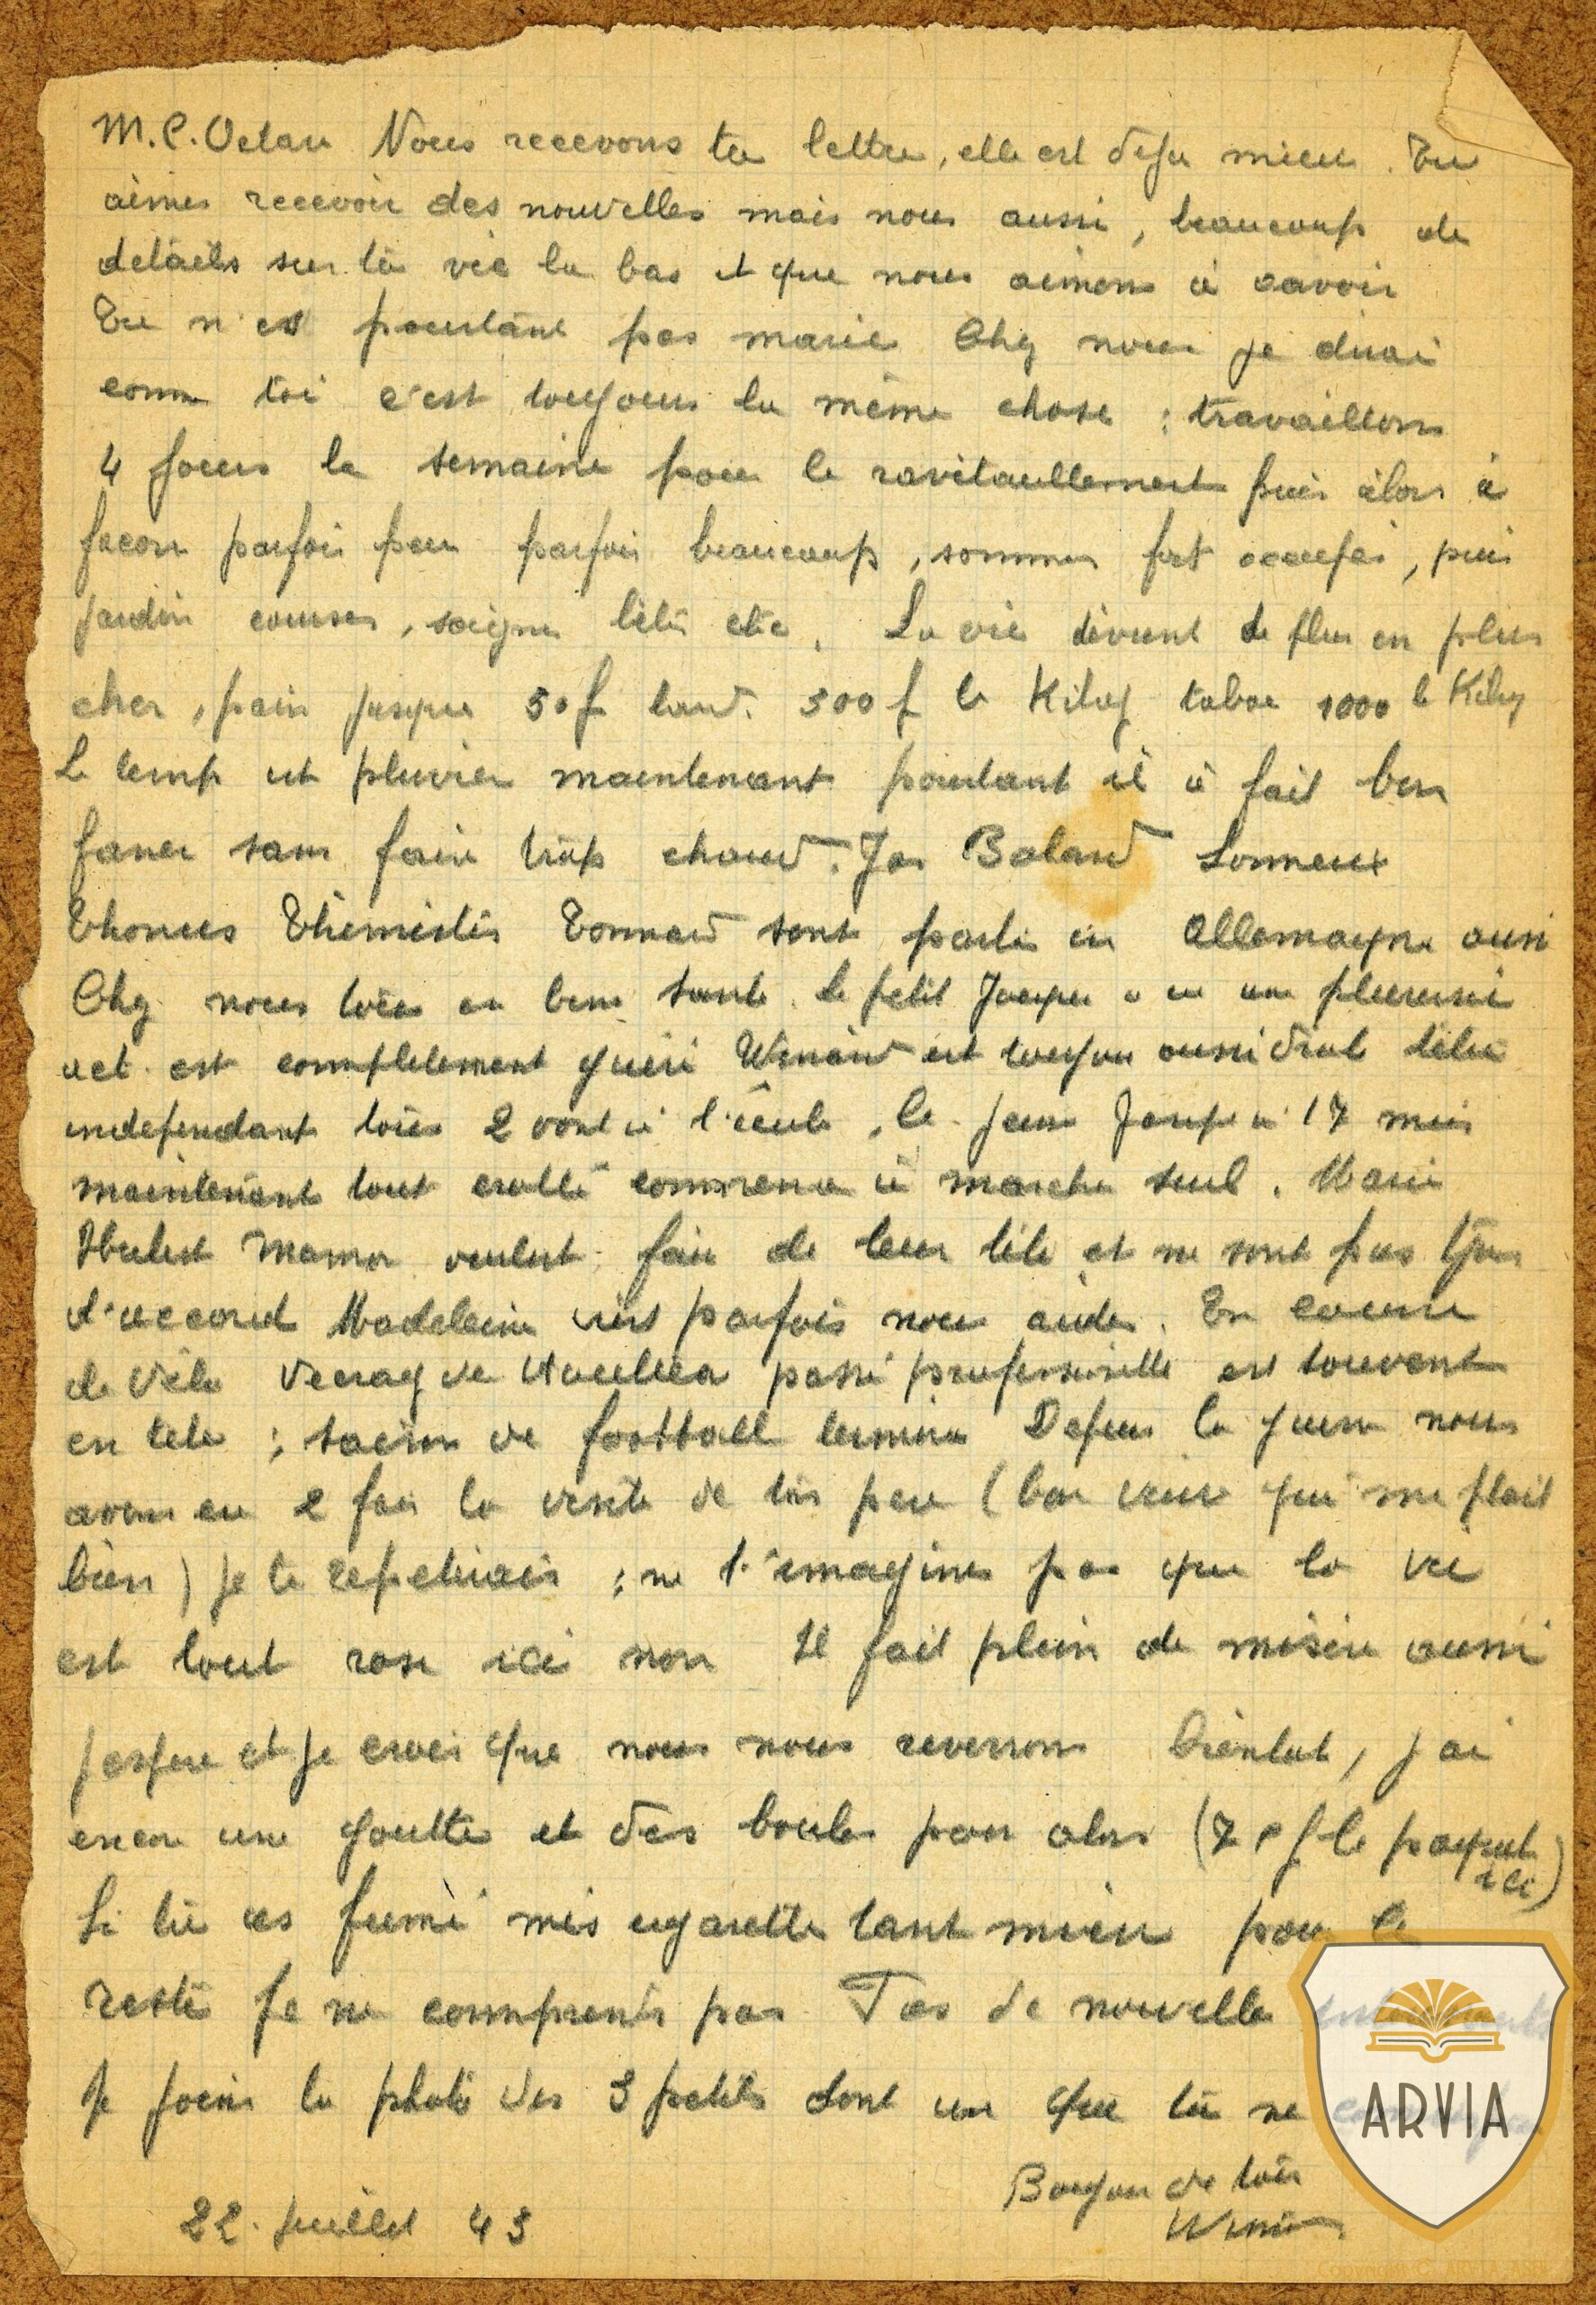 M.C. Octave Nous recevons ta lettre, elle est deja mieux. Tu
aimes recevoir des nouvelles mais nous aussi, beaucoup de
details sur ta vie la bas et que nous aimons à savoir
Tu n'es pourtant pas marie Chez nous je dirai
comm toi c'est toujours la même chose : travaillons
4 jours la semaine pour le ravitaullement puis alors à
facon parfois peu parfois beaucoup, sommes fort occupés, puis
jardin courses, soigner bêtes etc. La vie devient de plus en plus
cher, pain jusque 50f lard. 500f le Kilog tabac 1000 le Kilog
Le temp est pluvieu maintenant pourtant il à fait bon
faner sans faire trop chaud. Jos Boland Lonneux
Thonus Themistes Tonnard sont partis en Allemagne aussi
Chez nous tous en bonne sante. Le petit Jacques a eu une pleuresie
act. est completement guéri Wenand est toujou aussi drole tétu
independant tous 2 vont à l'école, le jeune Joseph à 17 mois
maintenant tout crollé commence à marcher seul. Marie
Hubert Maman veulent faire de leur tête et ne sont pas tjours
d'accord Madeleine vient parfois nous aider. En course
de Vélo de passé professionelle est souvent
en tete ; saison de football terminé Depuis la guerre nous
avons eu 2 fois la visite de ton pere (bon vieux qui me plait
bien) je te repeterais ; ne t'imagines pas que la vie
est tout rose ici non Il fait plein de misère aussi
J espere et je crois que nous nous reverrons bientot, j ai
encore une goutte et des boules pour alors (7 f le paquet
ici)
Si tu as fumé mes cigarettes tant mieux pour le
reste je ne comprends pas Tas de nouvelle
Je joins la photo des 3 petits dont un que tu ne
Bonjour de tous
22. juillet 43
ARVIA
Copyright © ARVIA ASBL